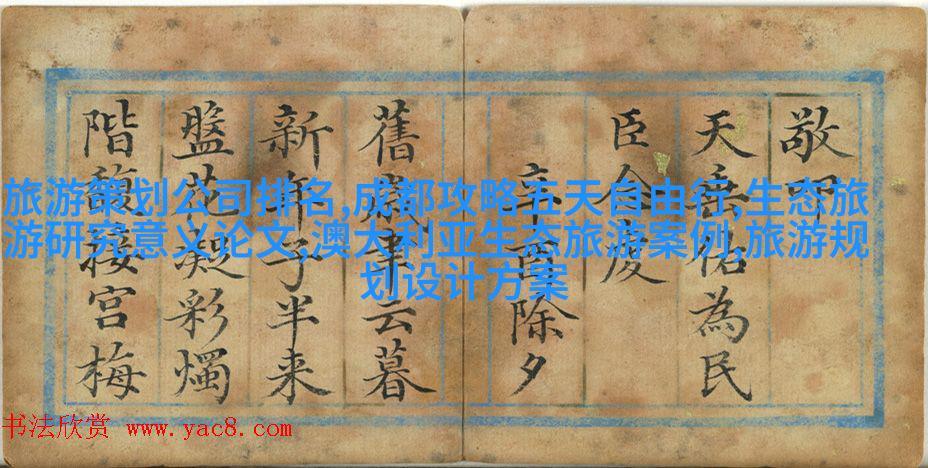 敬叩
天垂佑為民
臣度
辛酉除夕
舊歲聿云暮
新年子半来
盤花凝彩燭
階馥接宮梅
旅游策划公司排名,成都攻略五天自由行,生态旅
游研究意义论文,澳大利亚生态旅游案例,旅游规
划设计方案
书法欣赏 www.yac8.com